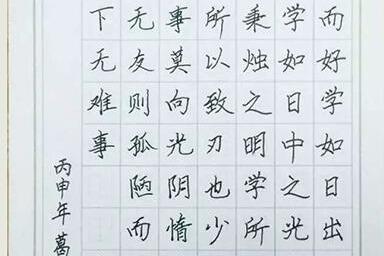 而好学如日出
学如日中之光
秉烛之明学所
所以致刃也少
事莫向光阴惰
无友则孤陋而
下无难事
丙申年葛